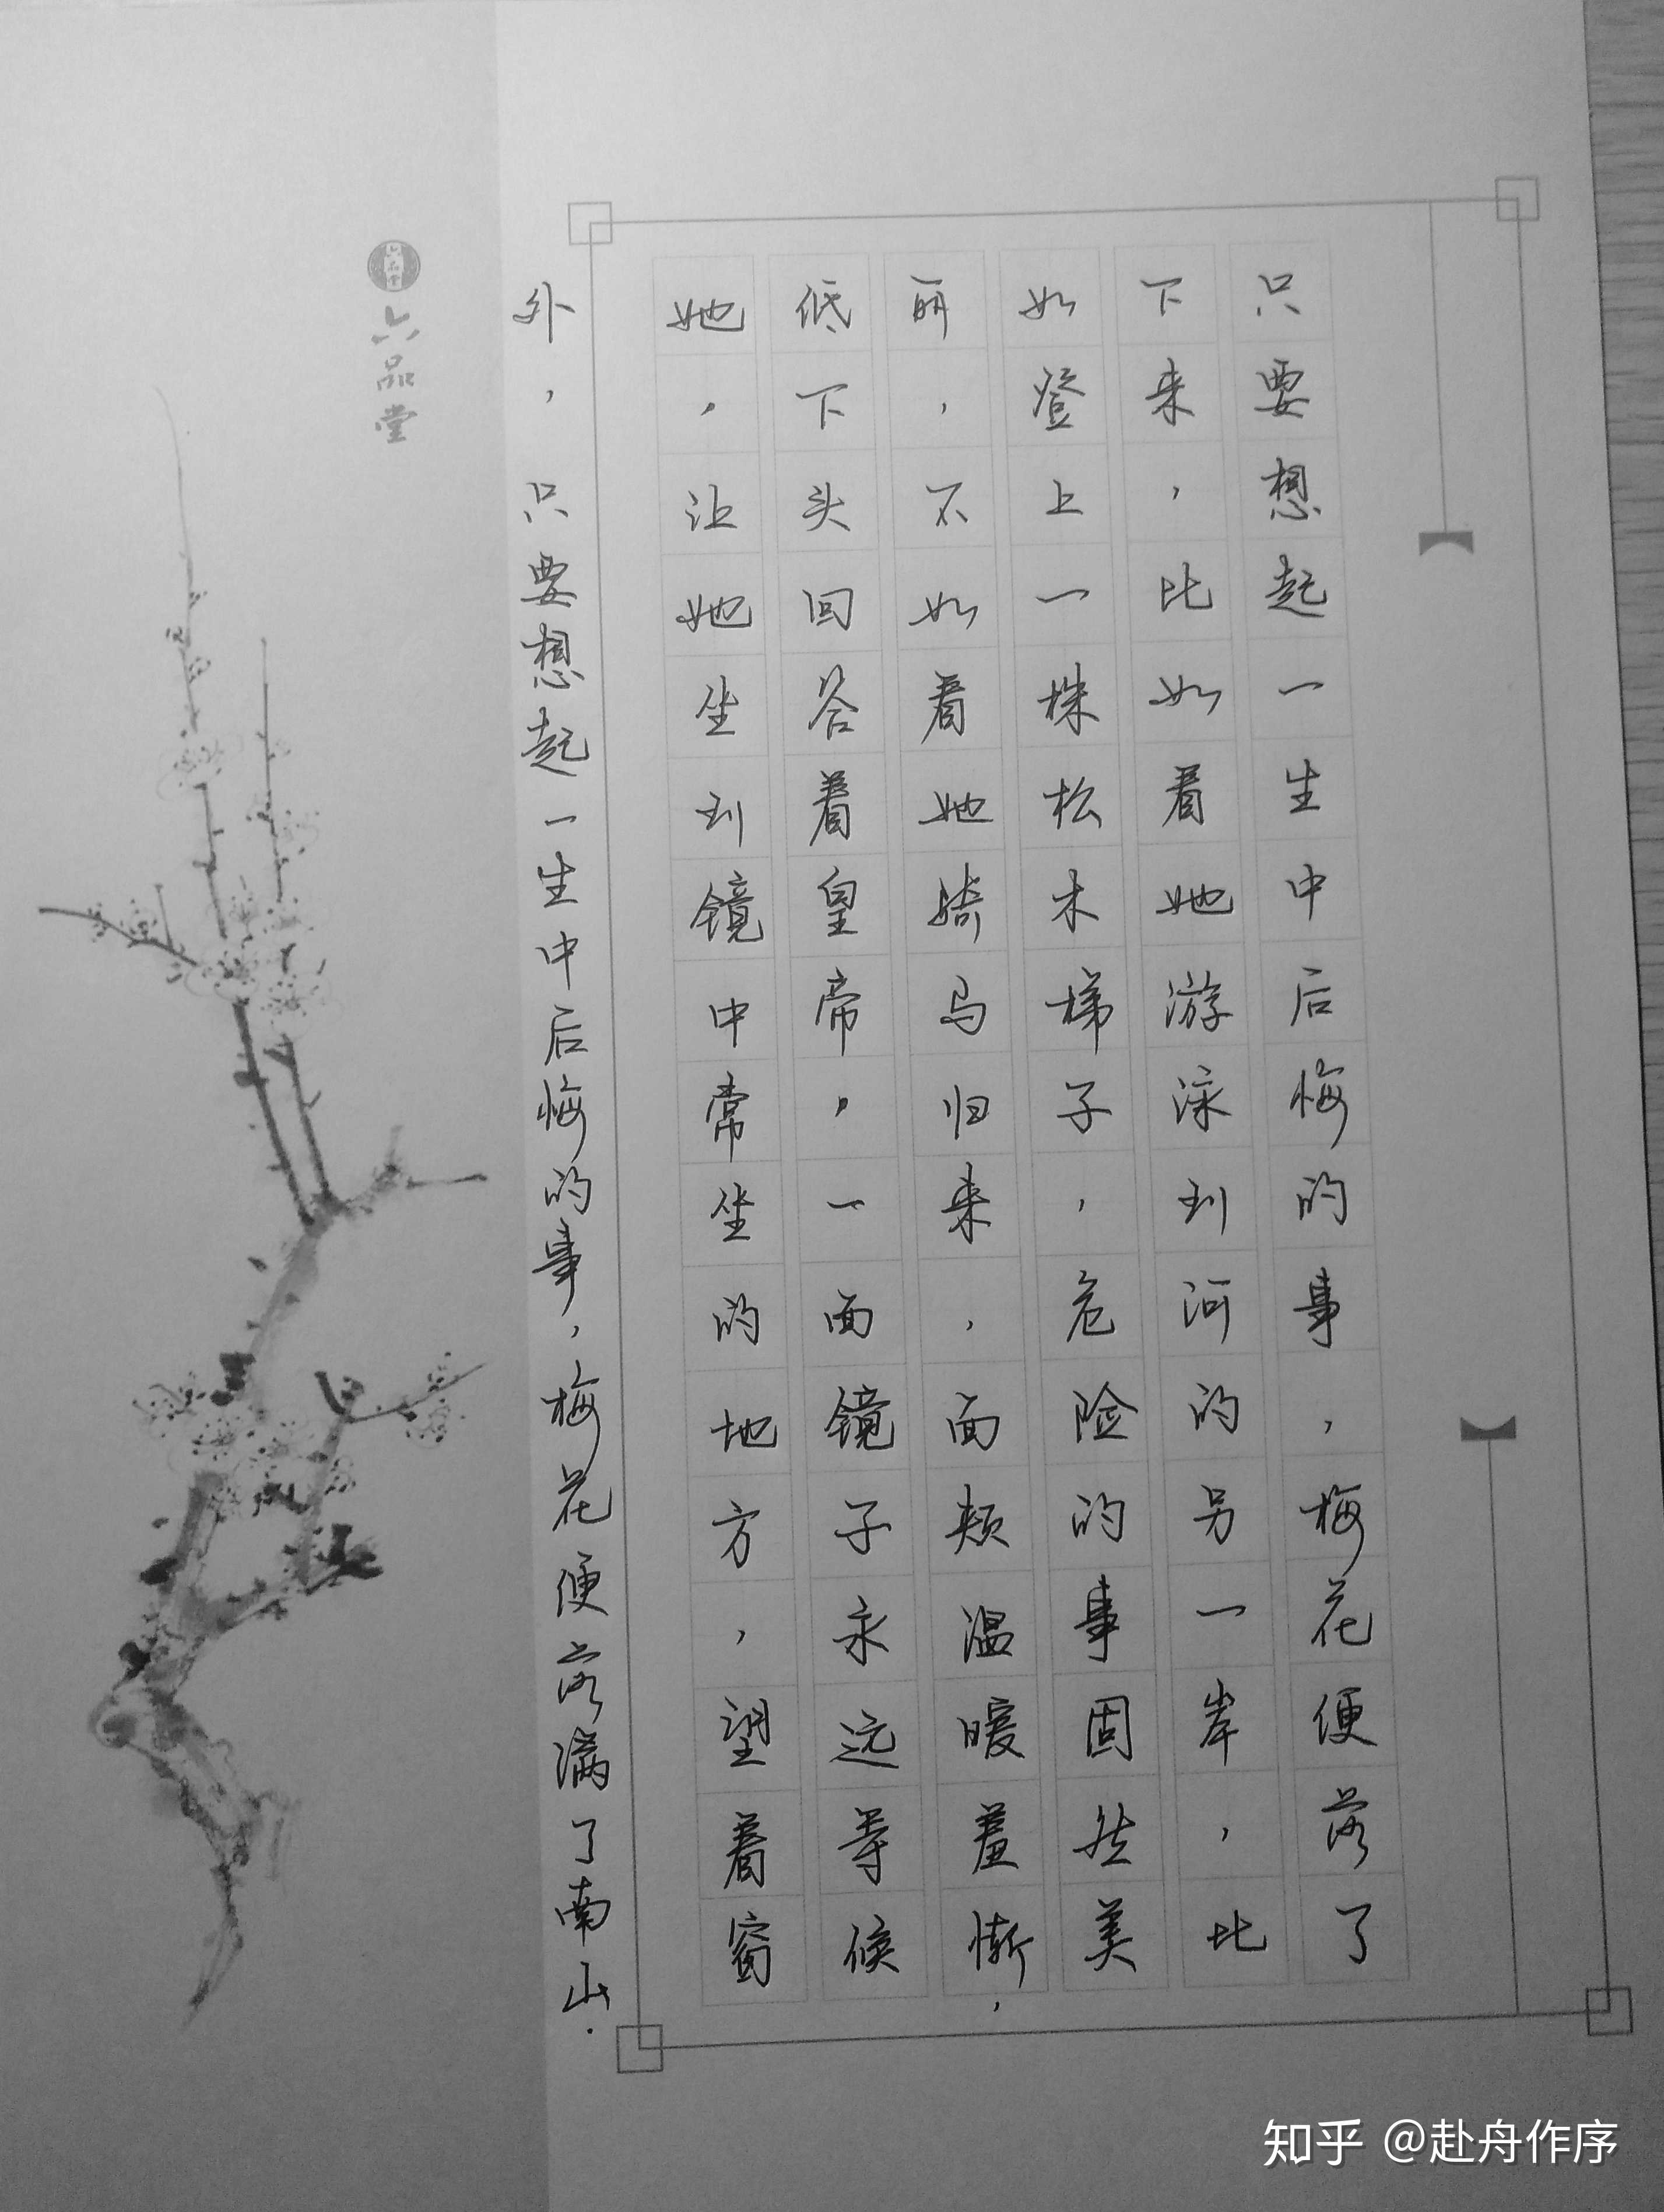 只要想起一生中后悔的事，梅花便落了
下来，比如看她游泳到河的另一岸，比
如登上一株松木梯子，危险的事固然美
丽，不如看她骑马归来，面颊温暖羞惭，
低下头回答着皇帝，一面镜子永远等候
她，让她坐到镜中常坐的地方，望着窗
外，只要想起一生中后悔的事，梅花便落满了南山.
六品堂
六品堂
知乎 @赴舟作序